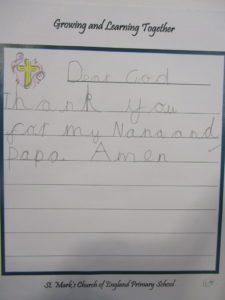 Growing and Learning Together
Dear God
thank you
for my Nana and
papa. Amen
St. Mark's Church of England Primary School